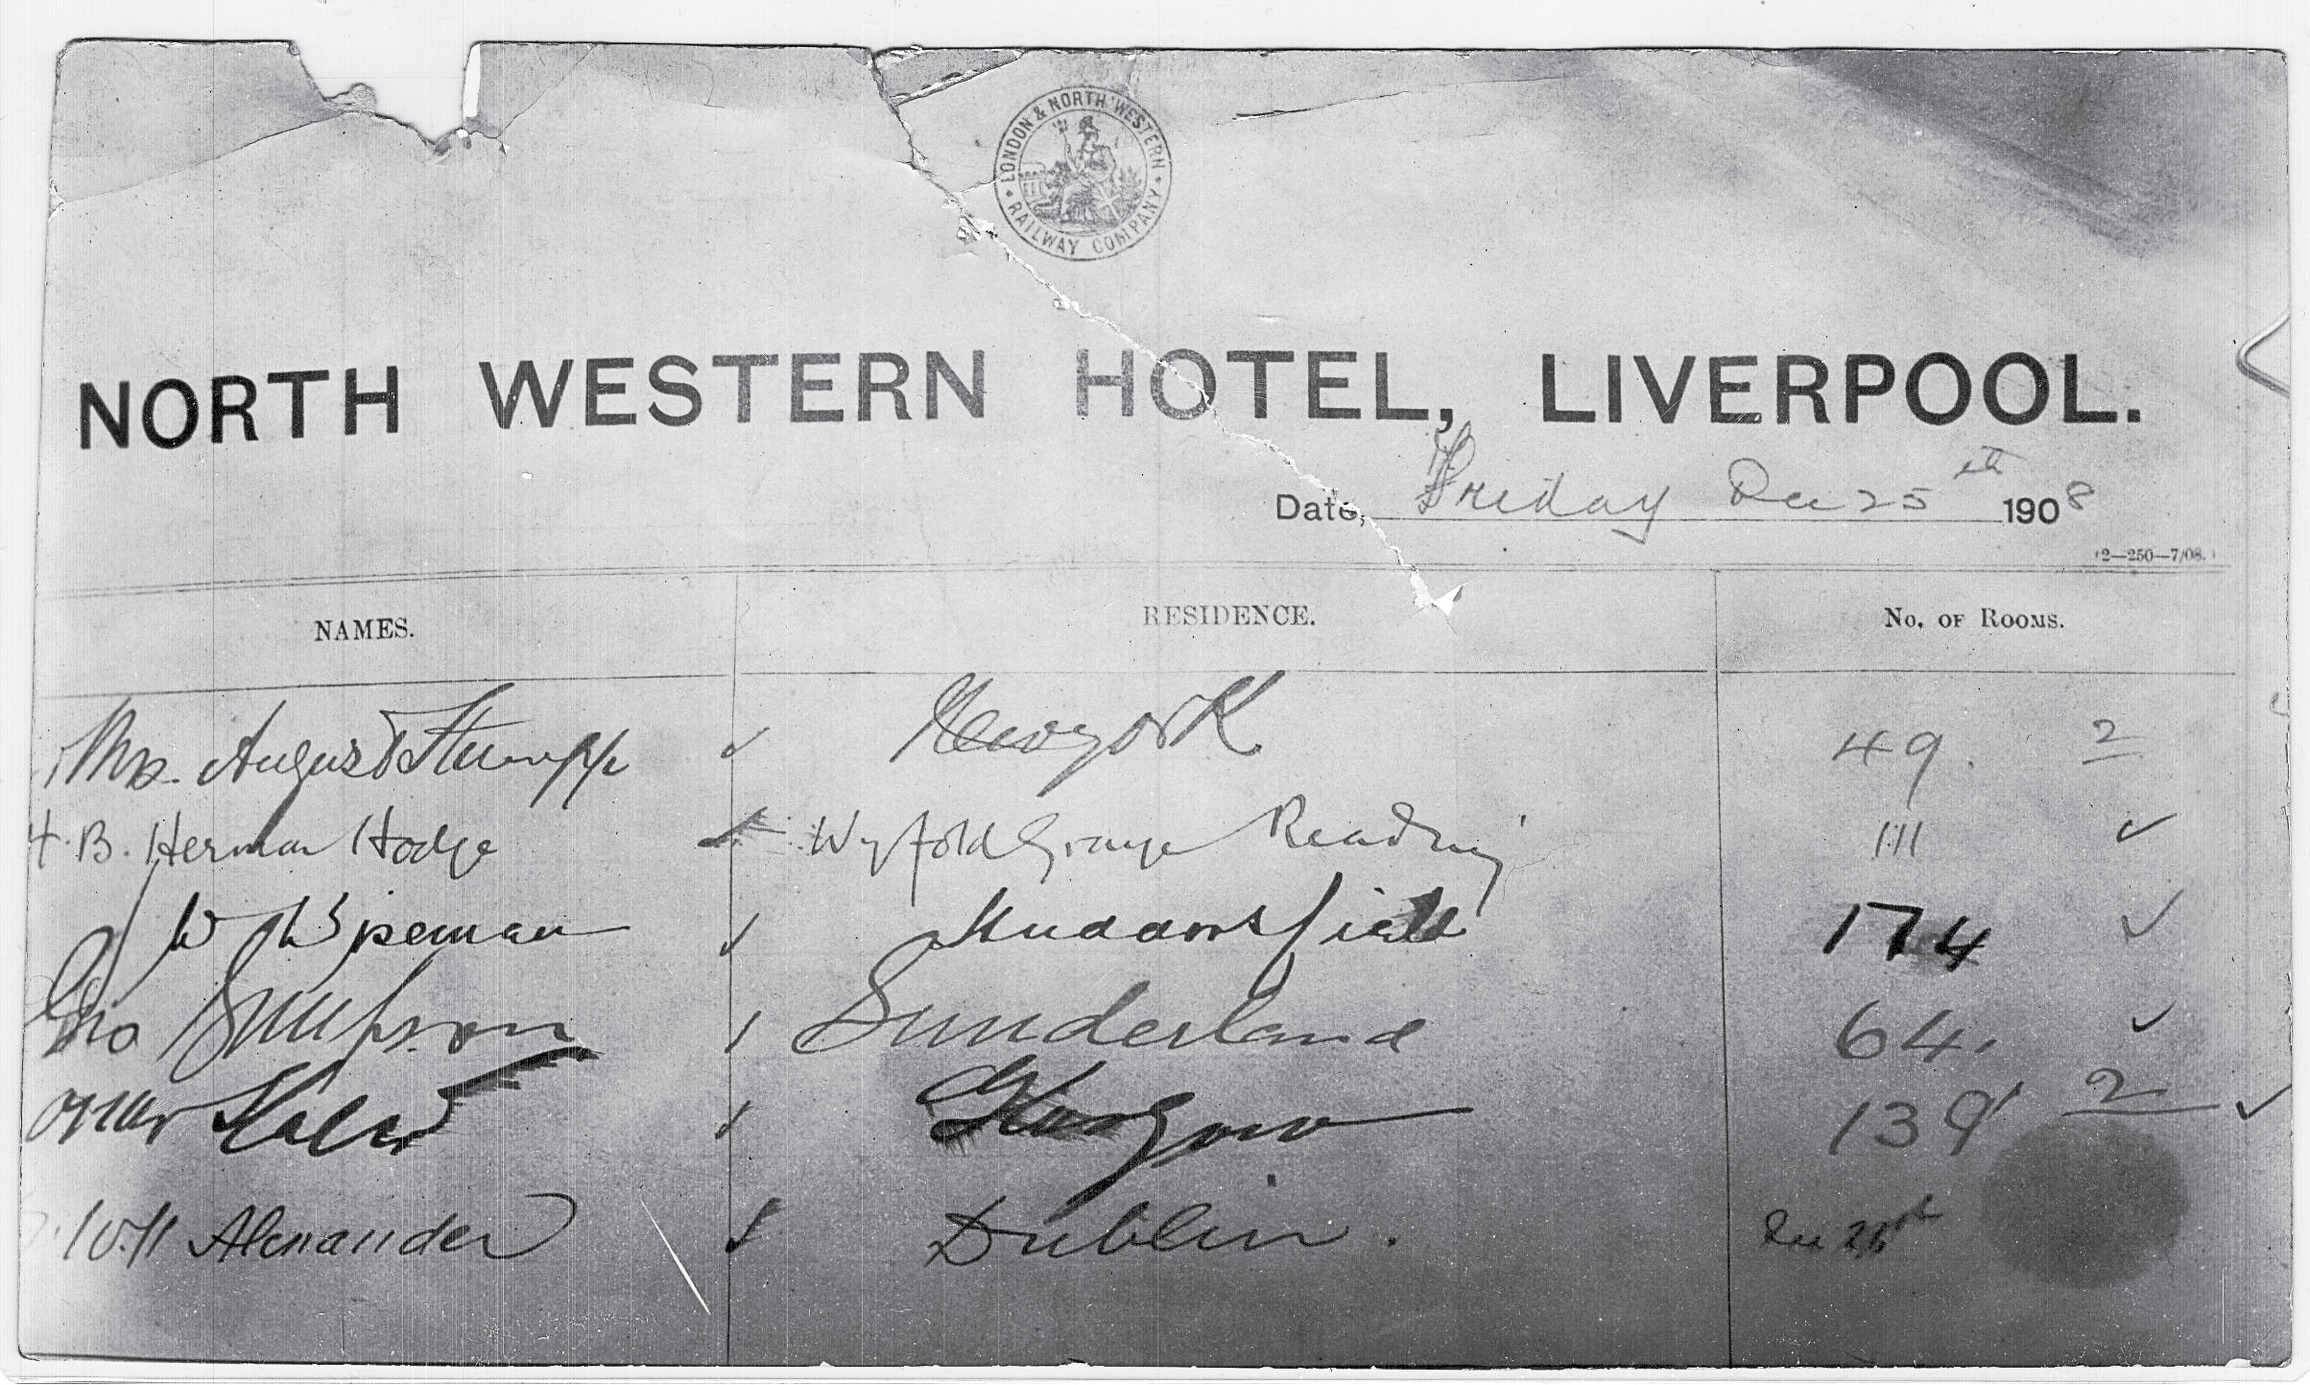 LONDON & NORTH WESTERN RAILWAY COMPANY
NORTH WESTERN HOTEL, LIVERPOOL.
Date, Friday Dec 25th 1908
12—250—7/08.
NAMES. RESIDENCE. No. OF ROOMS.
Mrs. August Stumpp New york 49. 2
H. B. Herman Hodge Wyfold Grange Reading 111
W Wiseman Huddersfield 174
Geo Simpson Sunderland 64.
Glasgow 139 2
W. H Alexander Dublin. Dec 25th